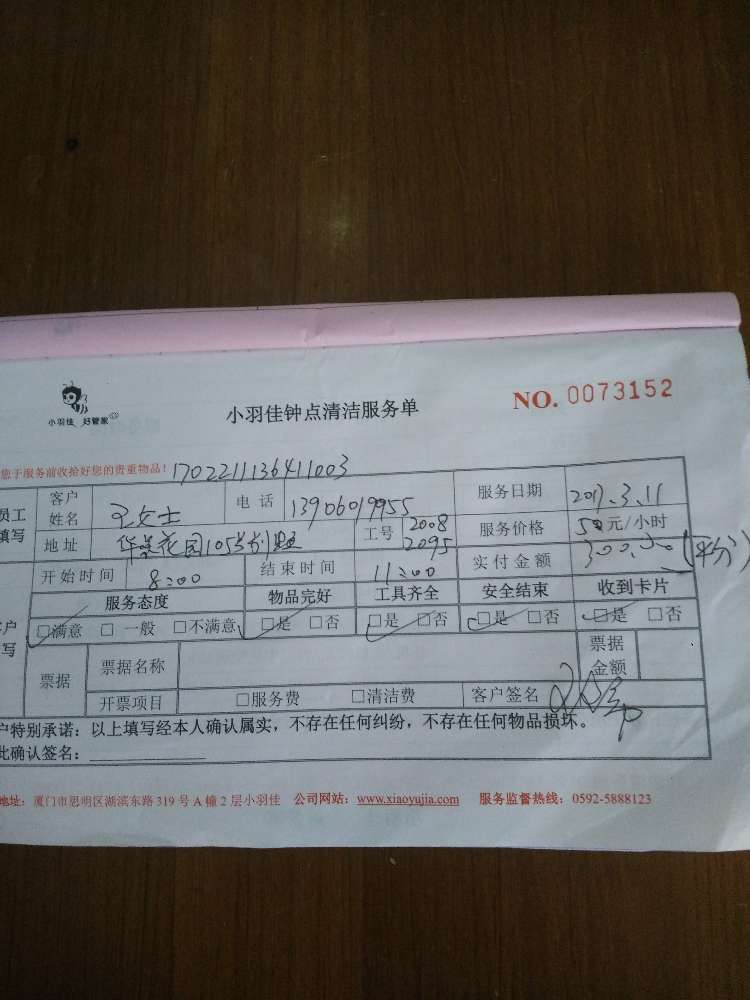 小羽佳 好管家
小羽佳钟点清洁服务单
NO. 0073152
您于服务前收拾好您的贵重物品！ 1702211136411003
员工填写 客户姓名 王女士 电话 13906019955 服务日期 2017.3.11
地址 华景花园105 工号 2008 2095 服务价格 50元/小时
开始时间 8:00 结束时间 11:00 实付金额 300.00 (平分)
服务态度 物品完好 工具齐全 安全结束 收到卡片
□满意 □一般 □不满意 □是 □否 □是 □否 □是 □否 □是 □否
票据 票据名称 票据金额
开票项目 □服务费 □清洁费 客户签名
户特别承诺：以上填写经本人确认属实，不存在任何纠纷，不存在任何物品损坏。
此确认签名：
地址：厦门市思明区湖滨东路319号A幢2层小羽佳 公司网站：www.xiaoyujia.com 服务监督热线：0592-5888123